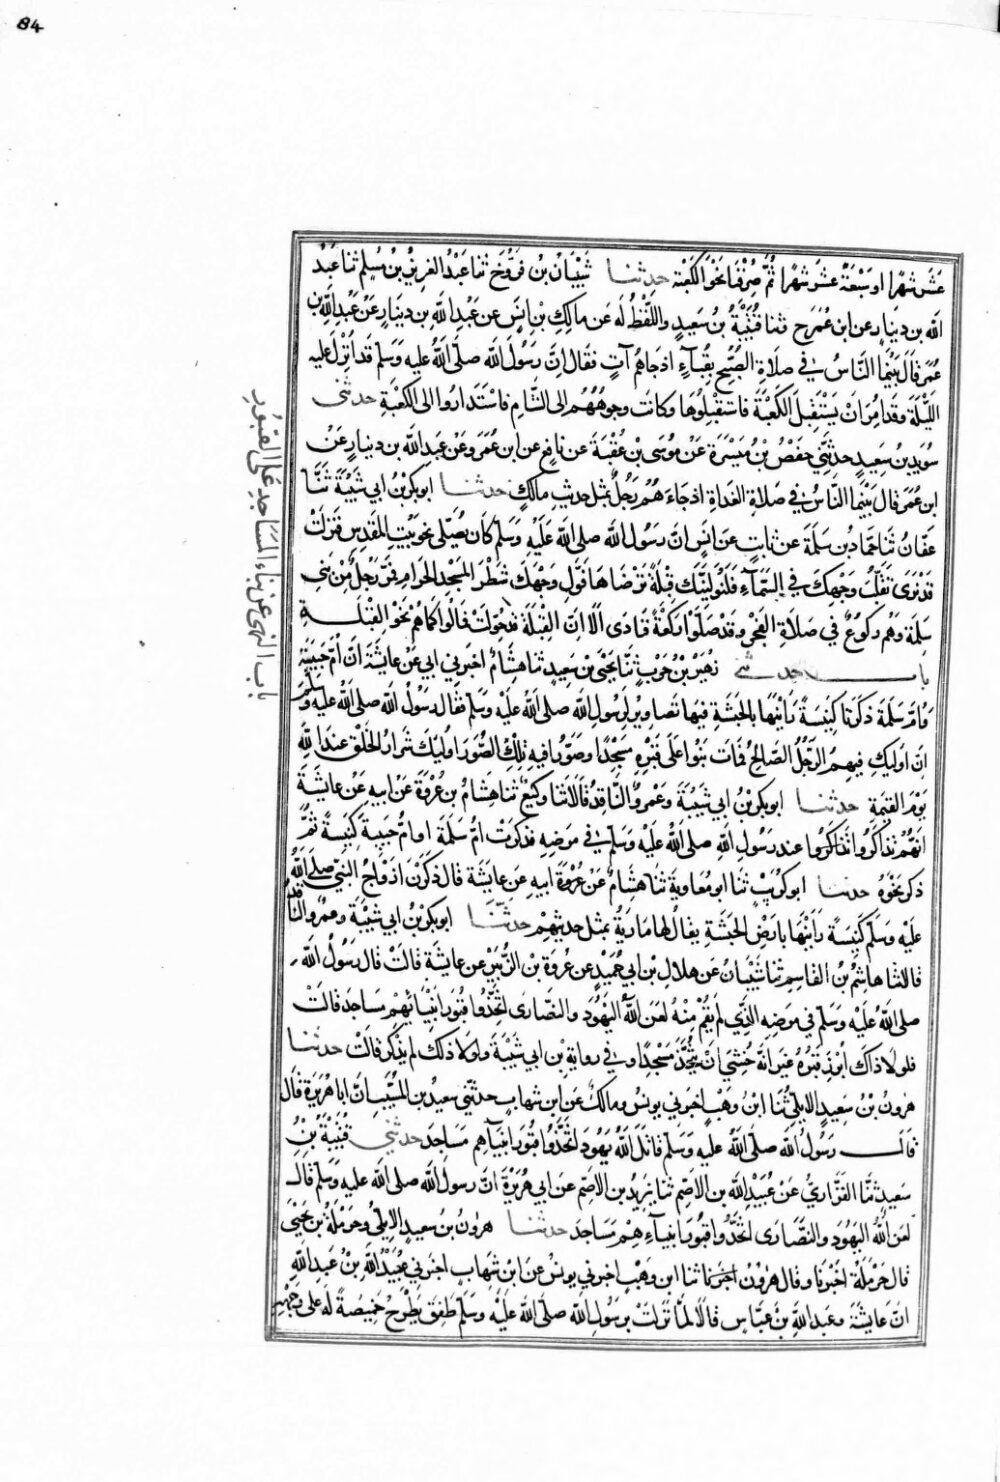 84
عشر شهرا او سبعة عشر شهرا ثم صرفنا نحو الكعبة حدثنا شيبان بن فروخ ثنا عبد العزيز بن مسلم ثنا عبد
الله بن دينار عن ابن عمر ح ثنا قتيبة بن سعيد واللفظ له عن مالك بن انس عن عبد الله بن دينار عن عبد الله بن
عمر قال بينما الناس في صلاة الصبح بقباء اذ جاءهم آت فقال ان رسول الله صلى الله عليه وسلم قد انزل عليه
الليلة وقد امر ان يستقبل الكعبة فاستقبلوها وكانت وجوههم الى الشام فاستداروا الى الكعبة حدثني
سويد بن سعيد حدثني حفص بن ميسرة عن موسى بن عقبة عن نافع عن ابن عمر وعن عبد الله بن دينار عن
ابن عمر قال بينما الناس في صلاة الغداة اذ جاءهم رجل بمثل حديث مالك حدثنا ابو بكر بن ابي شيبة ثنا
عفان ثنا حماد بن سلمة عن ثابت عن انس ان رسول الله صلى الله عليه وسلم كان يصلى نحو بيت المقدس فنزلت
قد نرى تقلب وجهك في السماء فلنولينك قبلة ترضاها فول وجهك شطر المسجد الحرام فمر رجل من بني
سلمة وهم ركوع في صلاة الفجر وقد صلوا ركعة فنادى الا ان القبلة قد حولت فمالوا كما هم نحو القبلة
باب حدثني زهير بن حرب ثنا يحيى بن سعيد ثنا هشام اخبرني ابي عن عايشة ان ام حبيبة
وام سلمة ذكرتا كنيسة رأينها بالحبشة فيها تصاوير لرسول الله صلى الله عليه وسلم فقال رسول الله صلى الله عليه وسلم
ان اوليك فيهم الرجل الصالح فمات بنوا على قبره مسجدا وصوروا فيه تلك الصور اوليك شرار الخلق عند الله
يوم القيمة حدثنا ابو بكر بن ابي شيبة وعمرو الناقد قالا ثنا وكيع ثنا هشام بن عروة عن ابيه عن عايشة
انهم تذاكروا عند رسول الله صلى الله عليه وسلم في مرضه فذكرت ام سلمة او ام حبيبة كنيسة ثم
ذكر نحوه حدثنا ابو كريب ثنا ابو معاوية ثنا هشام عن عروة ابيه عن عايشة قال ذكرن ازواج النبي صلى الله
عليه وسلم كنيسة رأينها بارض الحبشة يقال لها مارية بمثل حديثهم حدثنا ابو بكر بن ابي شيبة وعمرو الناقد
قالا ثنا هاشم بن القاسم ثنا شيبان عن هلال بن ابي حميد عن عروة بن الزبير عن عايشة قالت قال رسول الله
صلى الله عليه وسلم في مرضه الذي لم يقم منه لعن الله اليهود والنصارى اتخذوا قبور انبيائهم مساجد قالت
فلولا ذاك ابرز قبره غير انه خشي ان يتخذ مسجدا وفي رواية بن ابي شيبة ولولا ذلك لم يذكر قالت حدثنا
هرون بن سعيد الايلي ثنا ابن وهب اخبرني يونس ومالك عن ابن شهاب حدثني سعيد بن المسيب ان ابا هريرة قال
قال رسول الله صلى الله عليه وسلم قاتل الله يهود اتخذوا قبور انبياهم مساجد حدثني قتيبة بن
سعيد ثنا الفزاري عن عبيد الله بن الاصم ثنا يزيد بن الاصم عن ابي هريرة ان رسول الله صلى الله عليه وسلم قال
لعن الله اليهود والنصارى اتخذوا قبور انبياءهم مساجد حدثنا هرون بن سعيد الايلي وحرملة بن يحيى
قال حرملة اخبرنا وقال هرون اخبرنا ثنا ابن وهب اخبرني يونس عن ابن شهاب اخبرني عبيد الله بن عبد الله
ان عايشة وعبد الله بن عباس قالا لما نزلت برسول الله صلى الله عليه وسلم طفق يطرح خميصة له على وجهه
باب النهي عن بناء المساجد على القبور